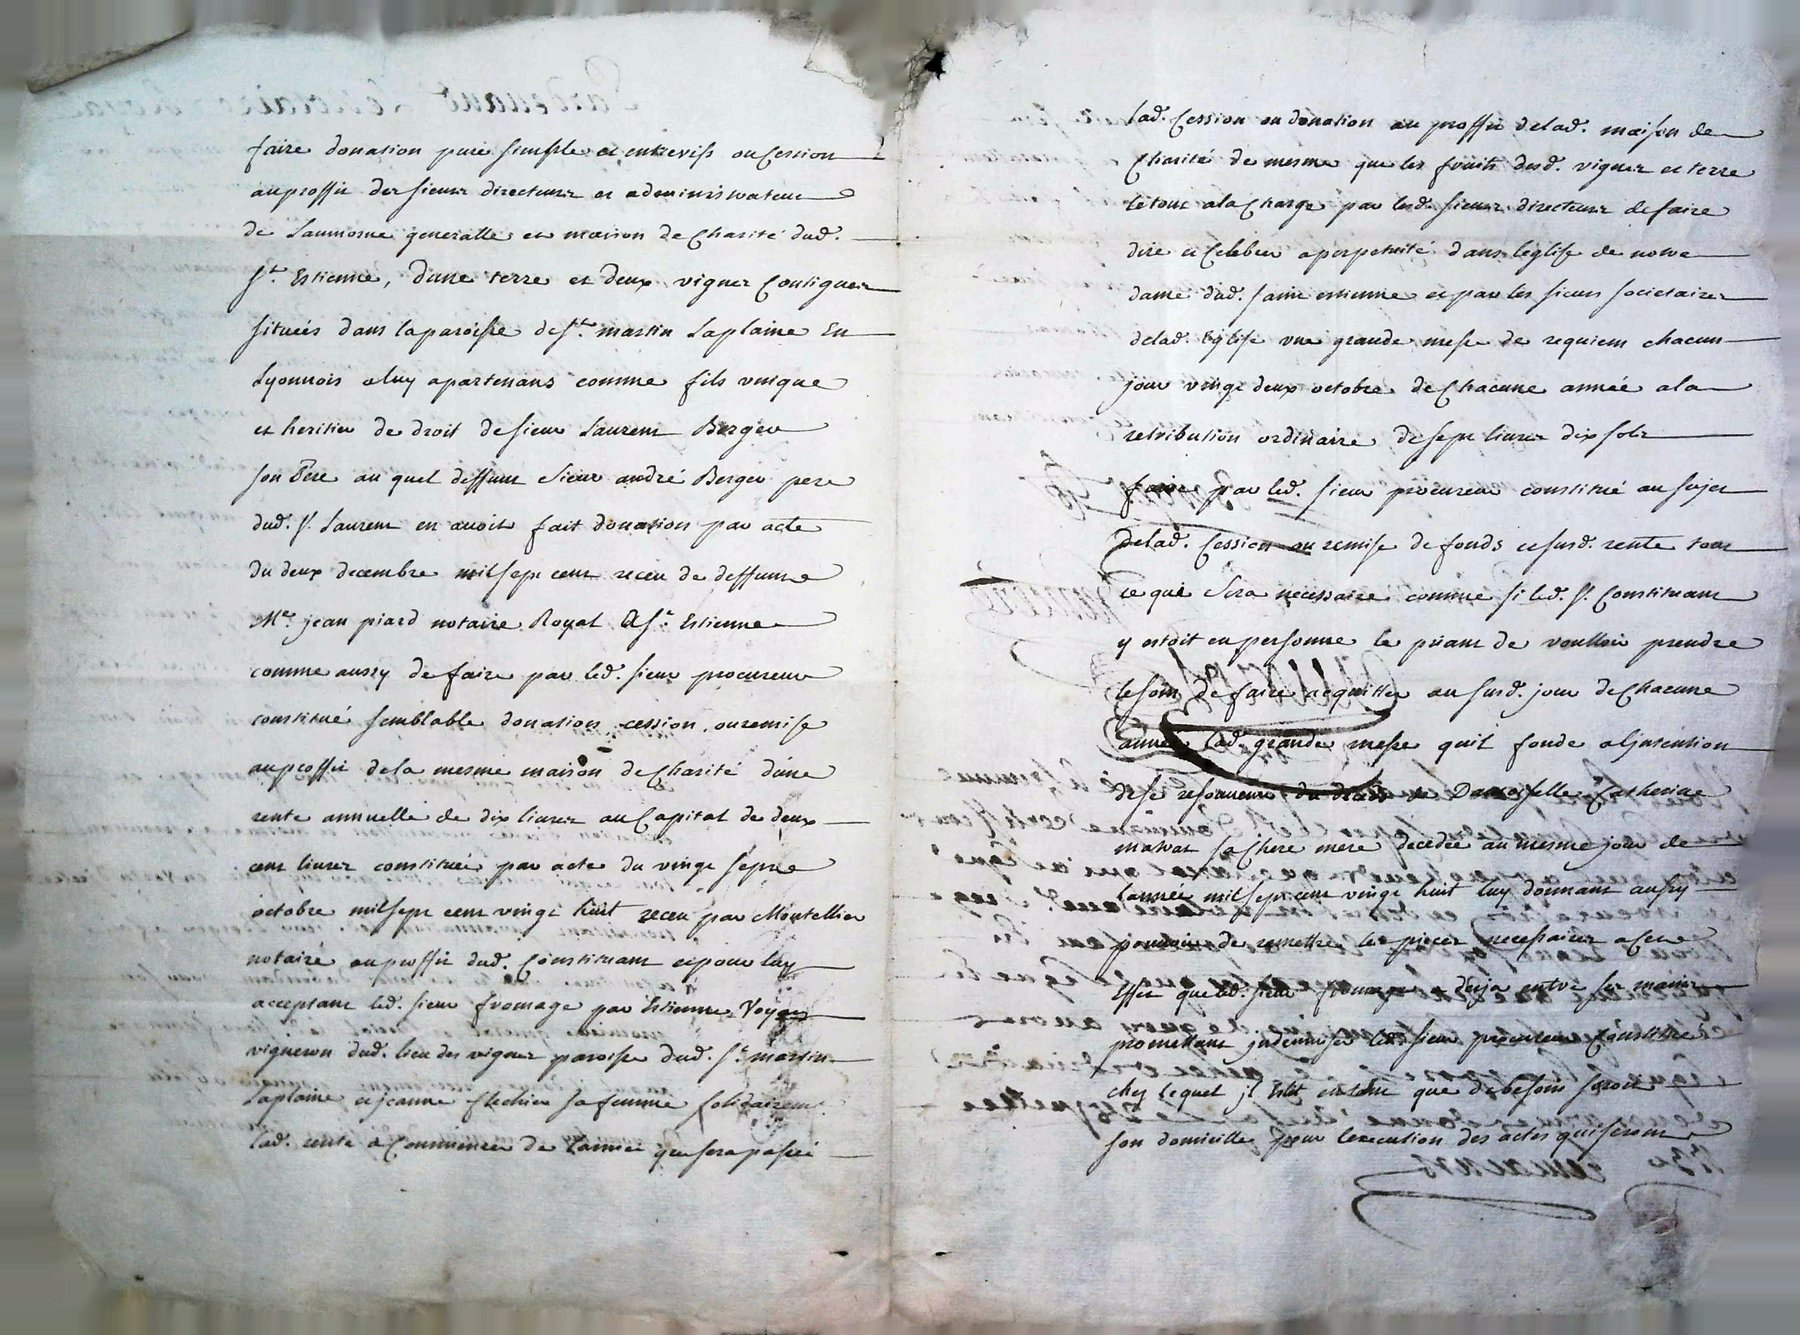 faire donation pure simple et entrevifs ou Cession
au proffit des sieurs directeurs et administrateurs
de Laumosne generalle et maison de Charité dud.
St. Estienne, dune terre et deux vignes Contigues
situées dans la paroisse de St. martin Laplaine En
Lyonnois a luy apartenans comme fils vnique
et heritier de droit de sieur Laurent Berger
son Pere au quel deffunt sieur andré Berger pere
dud. Sr. Laurent en avoit fait donation par acte
du deux decembre mil sept cent receu de deffunt
Me. jean piard notaire Royal A St. Estienne
comme aussy de faire par led. sieur procureur
constitué semblable donation cession ou remise
au proffit de la mesme maison de Charité dune
rente annuelle de dix livres au Capital de deux
cent livres constituée par acte du vingt sept
octobre mil sept cent vingt huit receu par Montellier
notaire au proffit dud. Constituant et pour luy
acceptant led. sieur fromage par Estienne Voyer
vigneron dud. lieu des vignes paroisse dud. St. martin
Laplaine et jeanne flechier sa femme solidairem.
lad. rente a Commencer de Lannée que sera passée
lad. Cession ou donation au proffit de lad. maison de
Charité de mesme que les fruits desd. vignes et terre
le tout a la Charge par lesd. sieurs directeurs de faire
dire et Celebrer a perpetuité dans leglise de notre
dame dud. saint estienne et par les sieurs societaires
de lad. Eglise vne grande messe de requiem chacun
jour vingt deux octobre de Chacune année a la
retribution ordinaire de sept livres dix sols
faire par led. sieur procureur constitué au sujet
De lad. Cession ou remise de fonds et susd. rente tout
ce que Sera necessaire comme si led. Sr. Constituant
y estoit en personne le priant de voulloir prendre
le soin de faire acquitter au susd. jour de Chacune
année lad. grande messe quil fonde a lintention
de se resouvenir du deces de Damoiselle Catherine
sa Chere mere decedée au mesme jour de
lannée mil sept cent vingt huit luy donnant aussy
pouvoir de remettre les pieces necessaires a Cet
Effet que led. sieur fromage a deja entre ses mains
promettant jndemniser led. sieur procureur Constitué
chez lequel jl Elit en tant que de besoin seroit
son domicille pour lexecution des actes qui seront